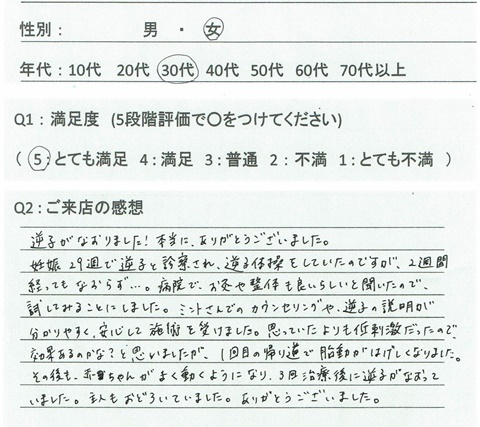 性別： 男 ・ 女
年代：10代 20代 30代 40代 50代 60代 70代以上
Q1：満足度 (5段階評価で〇をつけてください)
( 5：とても満足 4：満足 3：普通 2：不満 1：とても不満 )
Q2：ご来店の感想
逆子がなおりました！本当に、ありがとうございました。
妊娠29週で逆子と診察され、逆子体操をしていたのですが、2週間
経ってもなおらず…。病院で、お灸や整体も良いらしいと聞いたので、
試してみることにしました。ミントさんでのカウンセリングや、逆子の説明が
分かりやすく、安心して施術を受けました。思っていたよりも低刺激だったので、
効果あるのかな？と思いましたが、1回目の帰り道で胎動がはげしくなりました。
その後も、赤ちゃんがよく動くようになり、3回治療後に逆子がなおって
いました。主人もおどろいていました。ありがとうございました。